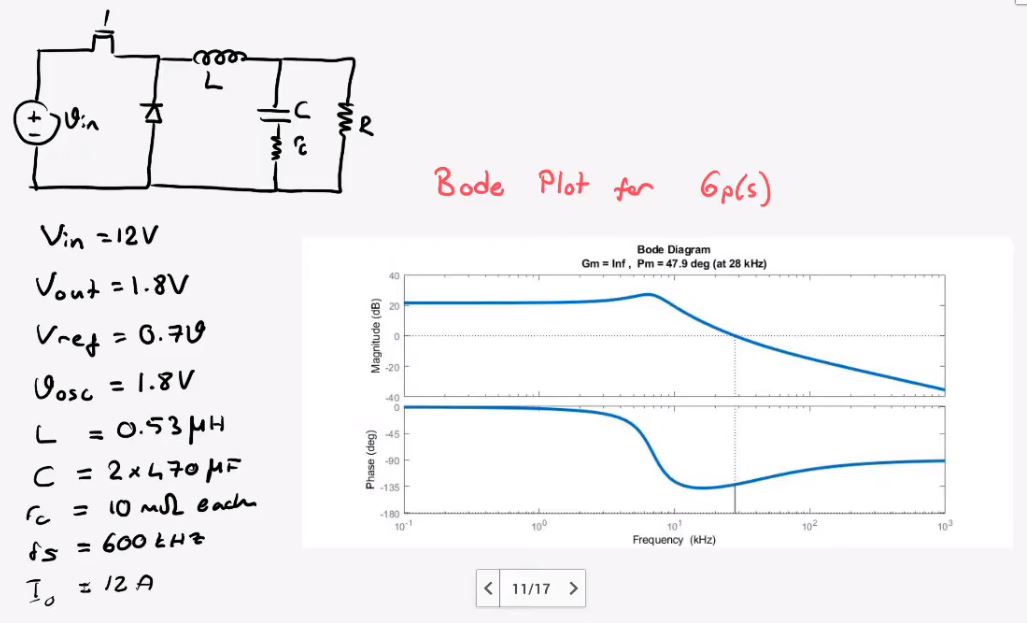 +
−
Vin
L
C
rc
R
Bode Plot for Gp(s)
Vin = 12V
Vout = 1.8V
Vref = 0.7V
Vosc = 1.8V
L = 0.53 μH
C = 2 x 470 μF
rc = 10 mΩ each
fs = 600 kHz
Io = 12 A
Bode Diagram
Gm = Inf , Pm = 47.9 deg (at 28 kHz)
Magnitude (dB)
40
20
0
-20
-40
Phase (deg)
0
-45
-90
-135
-180
10^-1
10^0
10^1
10^2
10^3
Frequency (kHz)
< 11/17 >